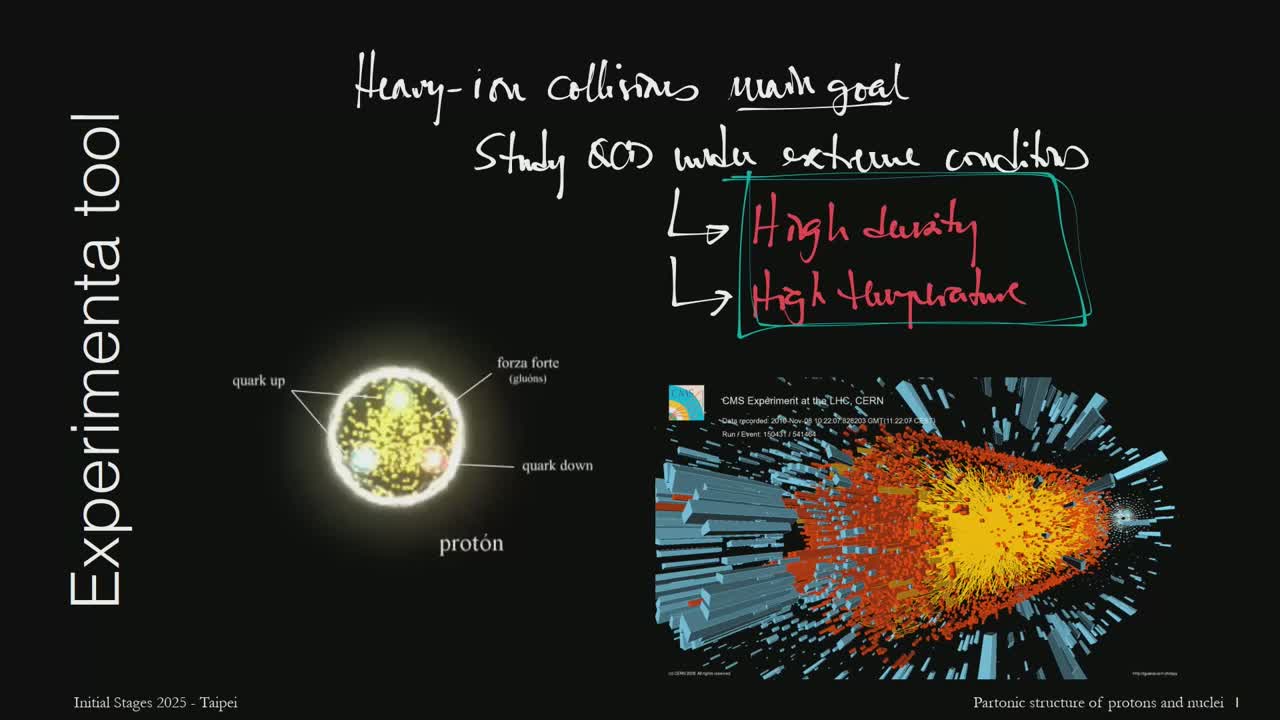 Experimenta tool
Heavy-ion collisions main goal
Study QCD under extreme conditions
High density
High temperature
quark up
forza forte
(gluóns)
quark down
protón
CMS
CMS Experiment at the LHC, CERN
Data recorded: 2010-Nov-08 10:22:07.828203 GMT(11:22:07 CEST)
Run / Event: 150431 / 541464
(c) CERN 2009. All rights reserved.
Initial Stages 2025 - Taipei
Partonic structure of protons and nuclei 1